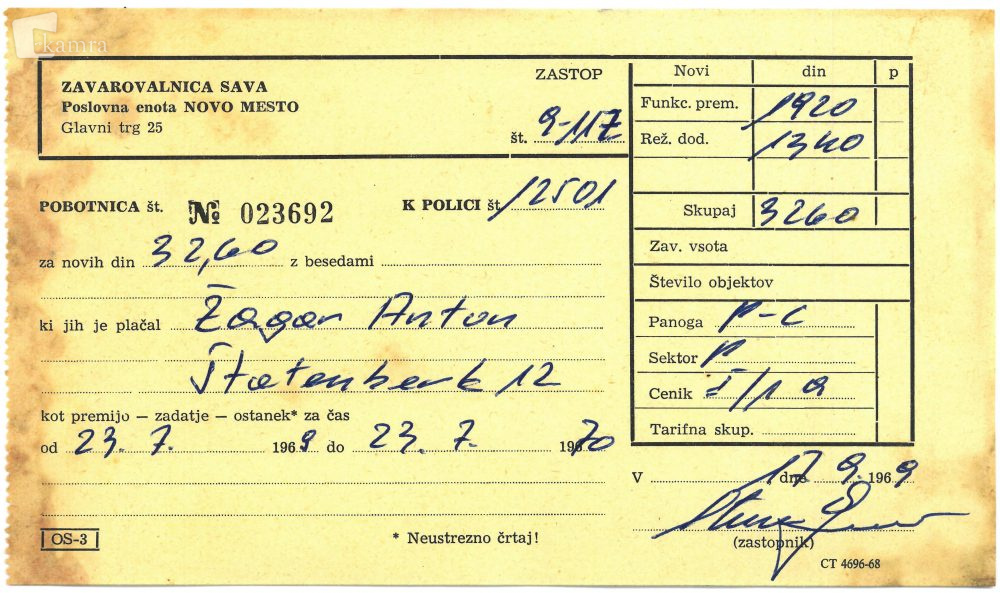 kamra
ZAVAROVALNICA SAVA
Poslovna enota NOVO MESTO
Glavni trg 25
ZASTOP
št. 9-117
Novi din p
Funkc. prem. 1920
Rež. dod. 1340
Skupaj 3260
Zav. vsota
Število objektov
Panoga P-C
Sektor P
Cenik I/1 a
Tarifna skup.
POBOTNICA št. № 023692 K POLICI št. 12501
za novih din 32,60 z besedami
ki jih je plačal Žagar Anton
Štatenberk 12
kot premijo — zadatje — ostanek* za čas
od 23. 7. 1969 do 23. 7. 1970
V dne 17 9. 1969
(zastopnik)
OS-3
* Neustrezno črtaj!
CT 4696-68